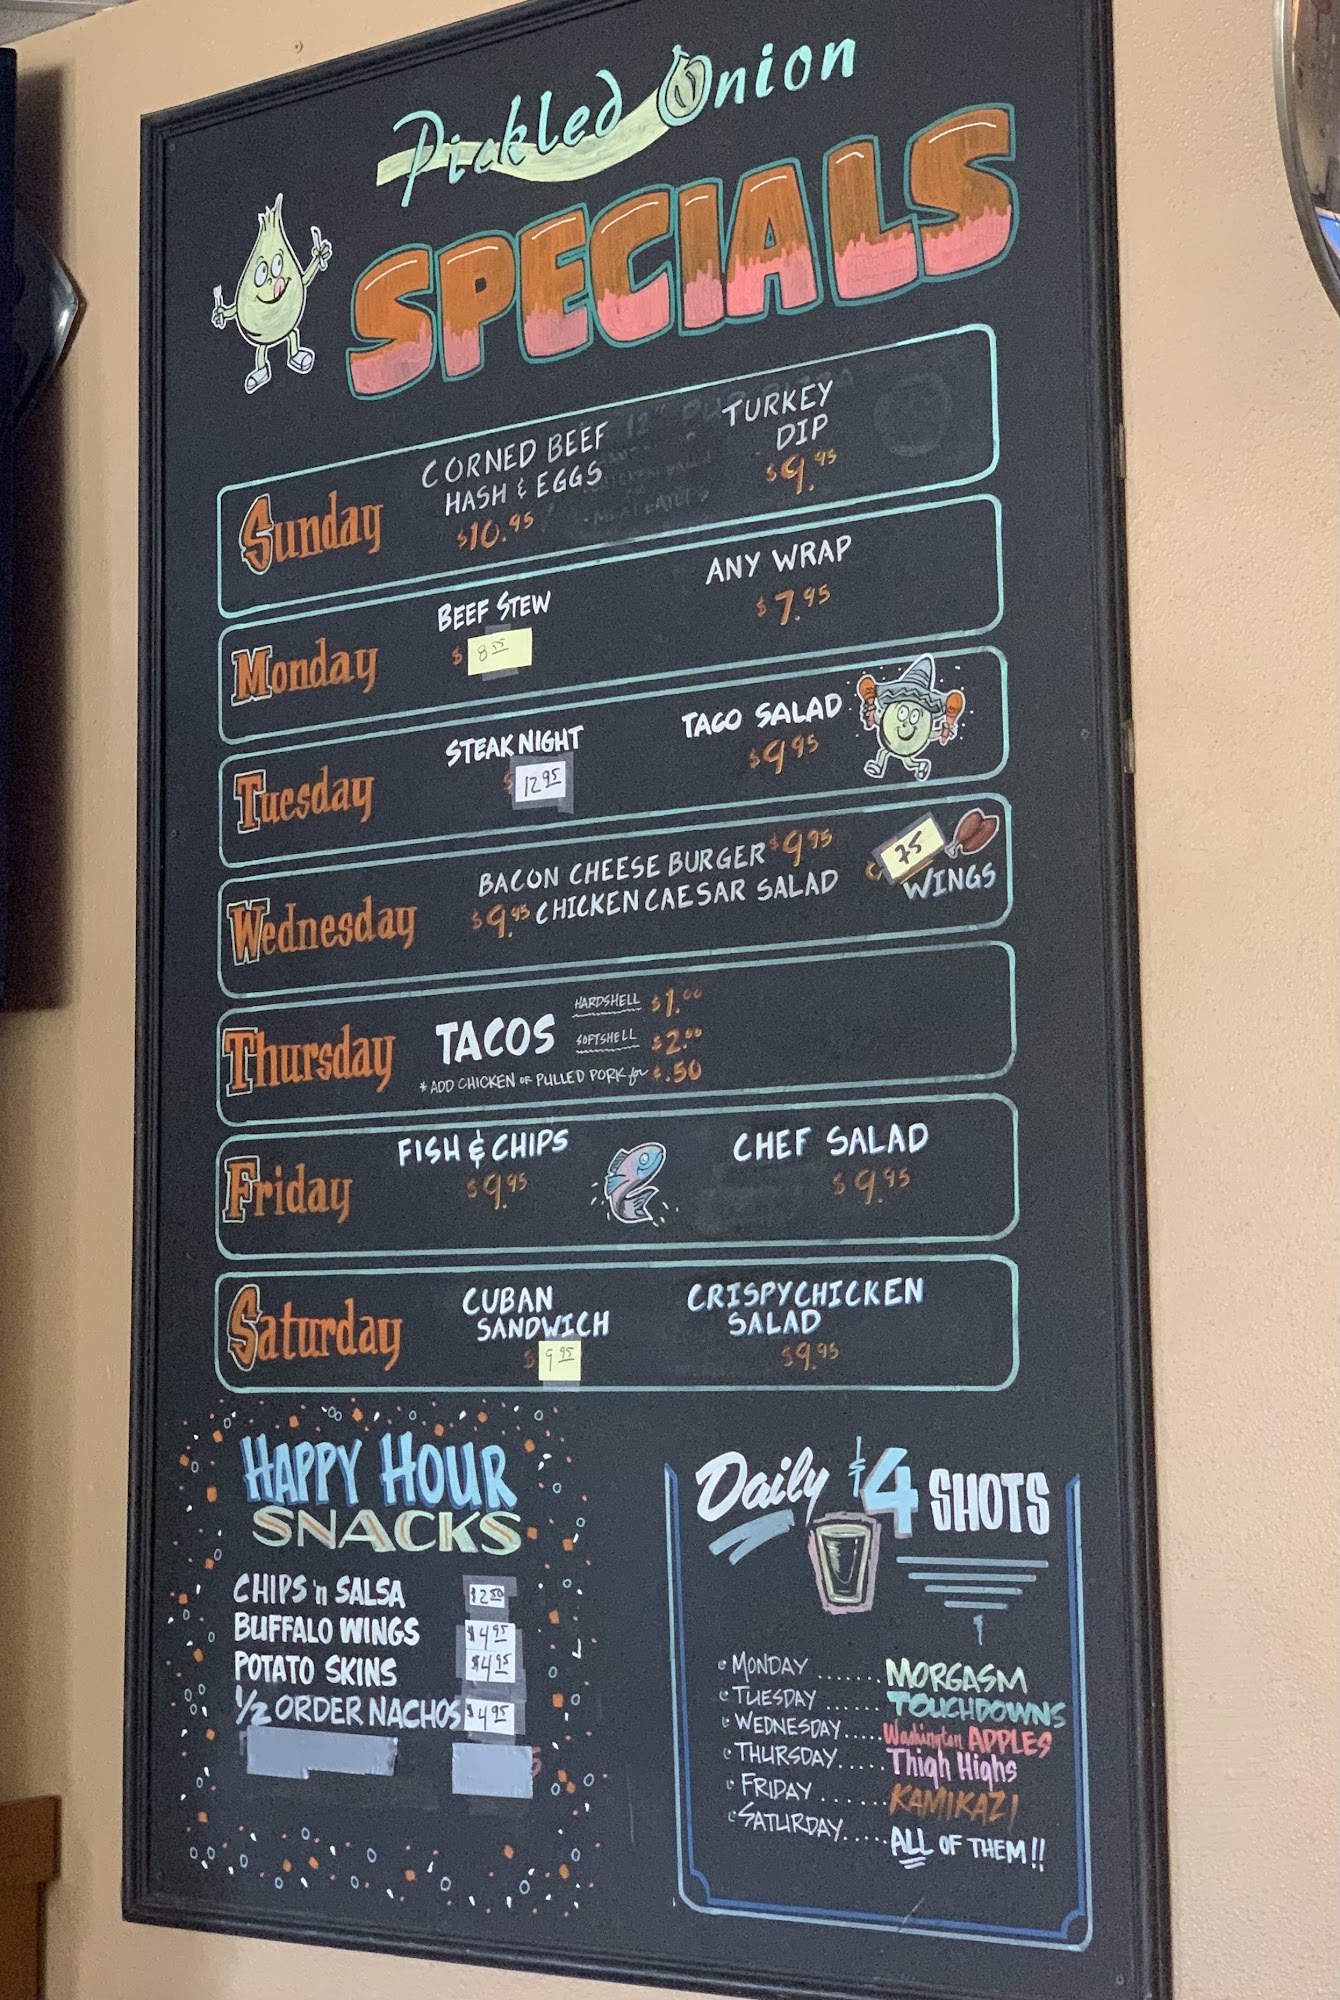 Pickled Onion
SPECIALS
Sunday
CORNED BEEF
HASH & EGGS
$10.95
TURKEY
DIP
$9.95
Monday
BEEF STEW
$
ANY WRAP
$7.95
Tuesday
STEAK NIGHT
$12.95
TACO SALAD
$9.95
Wednesday
BACON CHEESE BURGER $9.95
$9.95 CHICKEN CAESAR SALAD
75
WINGS
Thursday
TACOS
HARDSHELL $1.00
SOFTSHELL $2.00
* ADD CHICKEN OR PULLED PORK for $.50
Friday
FISH & CHIPS
$9.95
CHEF SALAD
$9.95
Saturday
CUBAN
SANDWICH
$9.95
CRISPY CHICKEN
SALAD
$9.95
HAPPY HOUR
SNACKS
CHIPS 'n SALSA $2.50
BUFFALO WINGS $4.95
POTATO SKINS $4.95
1/2 ORDER NACHOS $4.95
Daily $4 SHOTS
MONDAY ...... MORGASM
TUESDAY ...... TOUCHDOWNS
WEDNESDAY..... Washington APPLES
THURSDAY..... Thigh Highs
FRIDAY ....... KAMIKAZI
SATURDAY..... ALL OF THEM!!